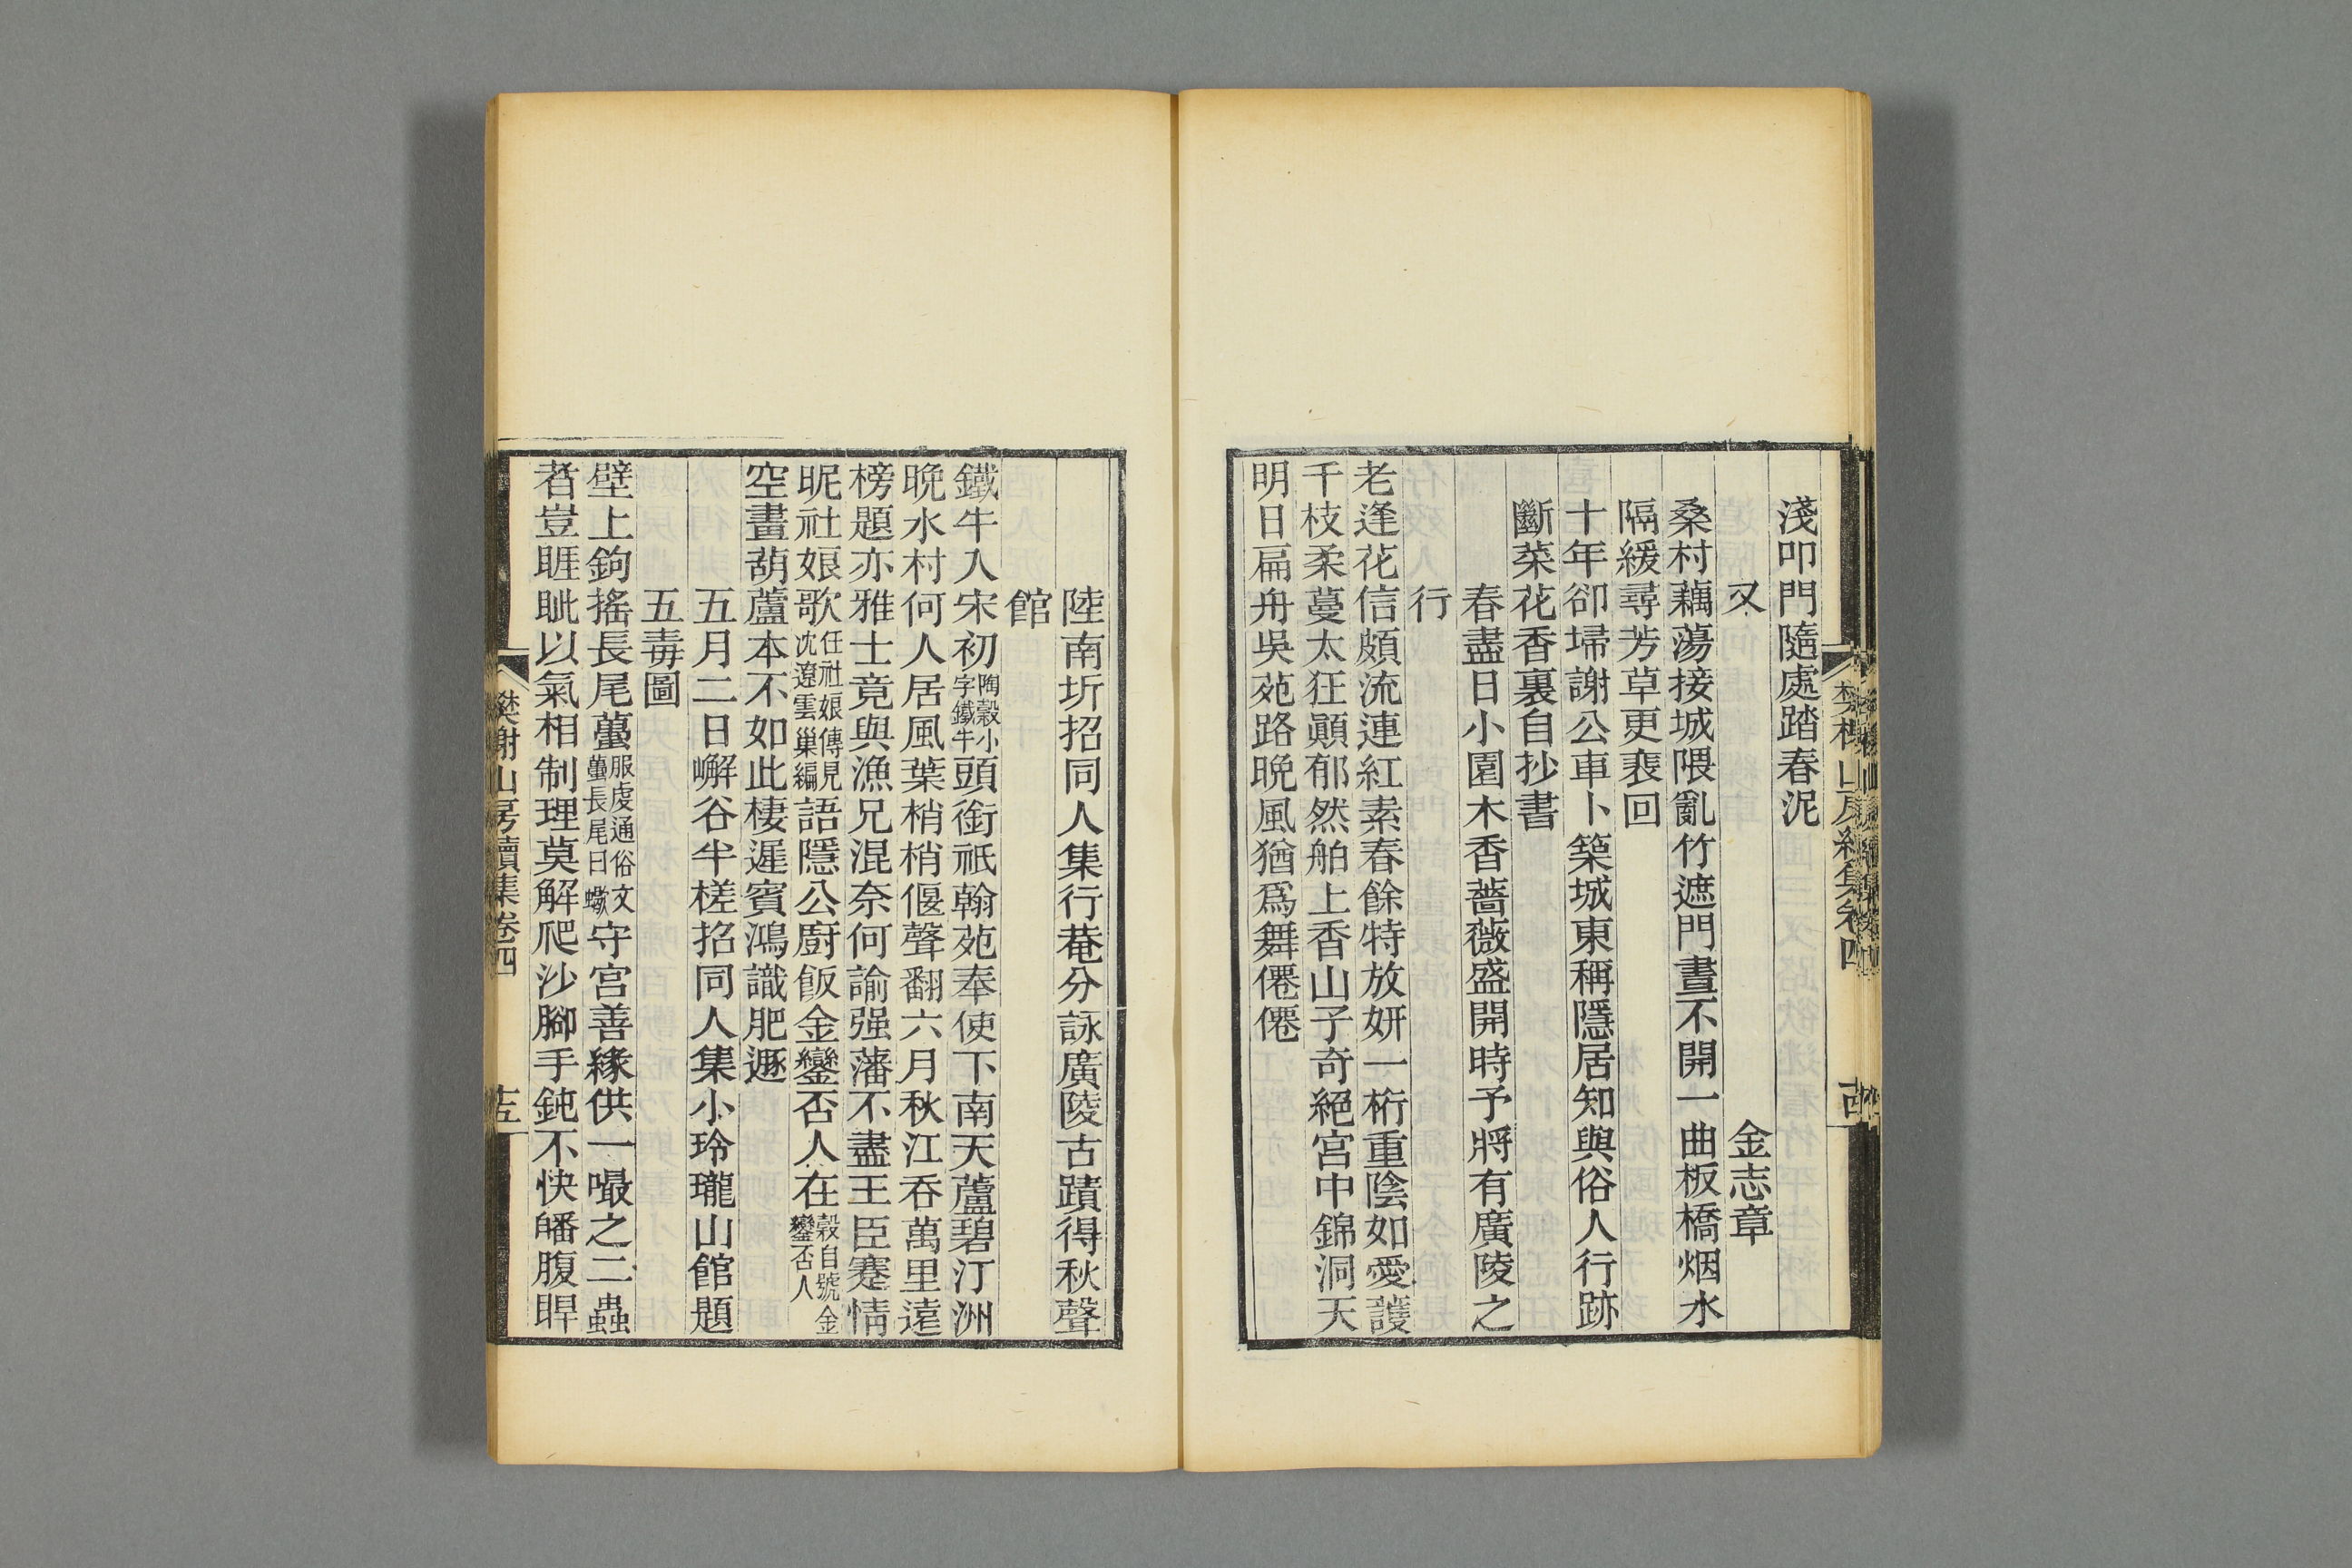 淺叩門隨處踏春泥
又　金志章
桑村藕蕩接城隈亂竹遮門晝不開一曲板橋烟水
隔緩尋芳草更裵回
十年卻埽謝公車卜築城東稱隱居知與俗人行跡
斷菜花香裏自抄書
春盡日小園木香薔薇盛開時予將有廣陵之
行
老逢花信頗流連紅素春餘特放妍一桁重陰如愛護
千枝柔蔓太狂顚郁然舶上香山子奇絕宮中錦洞天
明日扁舟吳苑路晩風猶爲舞僊僊
陸南圻招同人集行菴分詠廣陵古蹟得秋聲
館
鐵牛入宋初陶穀小字鐵牛頭銜祇翰苑奉使下南天蘆碧汀洲
晩水村何人居風葉梢梢偃聲翻六月秋江吞萬里遠
榜題亦雅士竟與漁兄混奈何諭强藩不盡王臣蹇情
昵社娘歌任社娘傳見沈遼雲巢編語隱公廚飯金鑾否人在穀自號金鑾否人
空畫葫蘆本不如此棲遲賓鴻識肥遯
五月二日嶰谷半槎招同人集小玲瓏山館題
五毒圖
壁上鉤搖長尾蠆服虔通俗文蠆長尾曰蠍守宮善緣供一嘬之二蟲
者豈睚眦以氣相制理莫解爬沙腳手鈍不快皤腹睅
樊榭山房續集卷四
十五